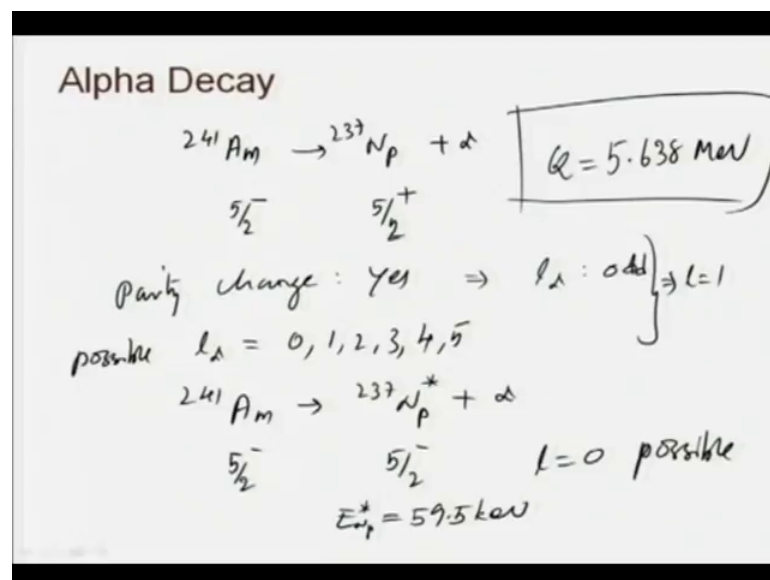 Alpha Decay
²⁴¹Am → ²³⁷Np + α
Q = 5.638 MeV
5/2⁻ 5/2⁺
Parity change : Yes ⇒ lα : odd } ⇒ l=1
possible lα = 0, 1, 2, 3, 4, 5
²⁴¹Am → ²³⁷Np* + α
5/2⁻ 5/2⁻ l=0 possible
E*Np = 59.5 keV